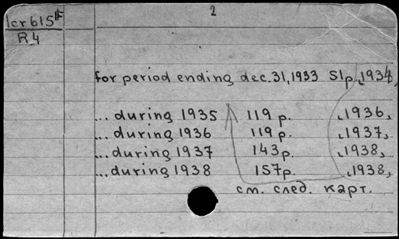 2
1cr615
R4
for period ending dec.31,1933 51p.,1934,
...during 1935 119 p. ,1936,
...during 1936 119 p. ,1937,
...during 1937 143 p. ,1938,
...during 1938 157 p. ,1938,
см. след. карт.